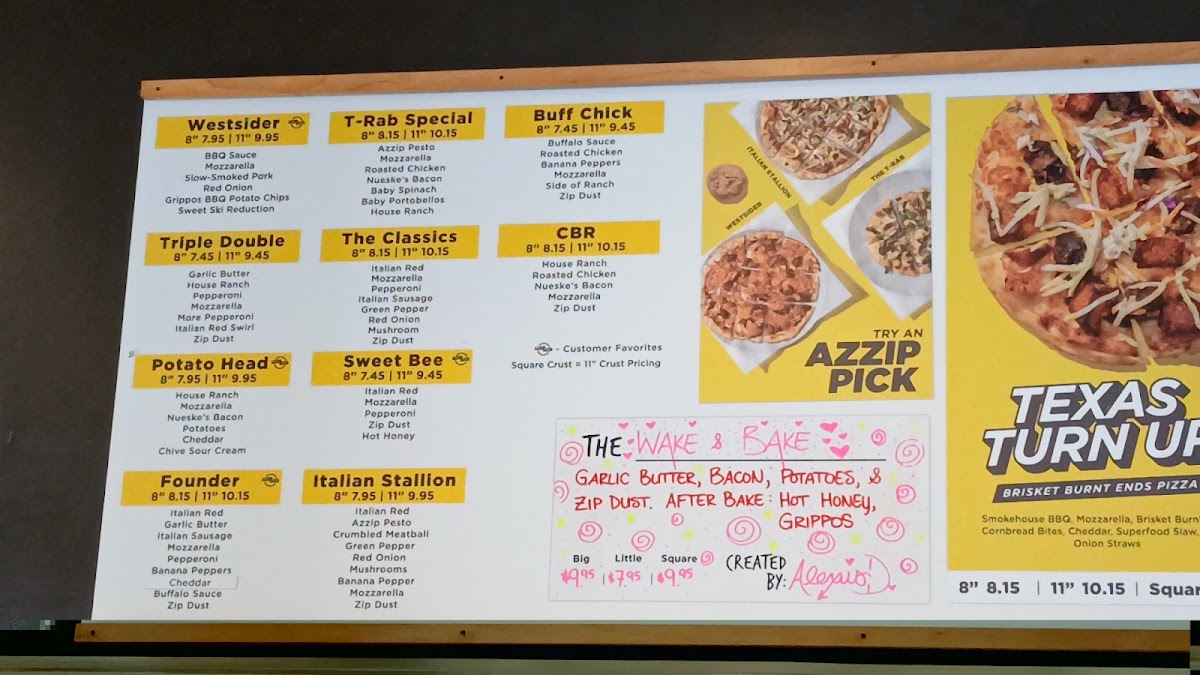 Westsider
8" 7.95 | 11" 9.95
BBQ Sauce
Mozzarella
Slow-Smoked Pork
Red Onion
Grippos BBQ Potato Chips
Sweet Ski Reduction
Triple Double
8" 7.45 | 11" 9.45
Garlic Butter
House Ranch
Pepperoni
Mozzarella
More Pepperoni
Italian Red Swirl
Zip Dust
Potato Head
8" 7.95 | 11" 9.95
House Ranch
Mozzarella
Nueske's Bacon
Potatoes
Cheddar
Chive Sour Cream
Founder
8" 8.15 | 11" 10.15
Italian Red
Garlic Butter
Italian Sausage
Mozzarella
Pepperoni
Banana Peppers
Cheddar
Buffalo Sauce
Zip Dust
T-Rab Special
8" 8.15 | 11" 10.15
Azzip Pesto
Mozzarella
Roasted Chicken
Nueske's Bacon
Baby Spinach
Baby Portobellos
House Ranch
The Classics
8" 8.15 | 11" 10.15
Italian Red
Mozzarella
Pepperoni
Italian Sausage
Green Pepper
Red Onion
Mushroom
Zip Dust
Sweet Bee
8" 7.45 | 11" 9.45
Italian Red
Mozzarella
Pepperoni
Zip Dust
Hot Honey
Italian Stallion
8" 7.95 | 11" 9.95
Italian Red
Azzip Pesto
Crumbled Meatball
Green Pepper
Red Onion
Mushrooms
Banana Pepper
Mozzarella
Zip Dust
Buff Chick
8" 7.45 | 11" 9.45
Buffalo Sauce
Roasted Chicken
Banana Peppers
Mozzarella
Side of Ranch
Zip Dust
CBR
8" 8.15 | 11" 10.15
House Ranch
Roasted Chicken
Nueske's Bacon
Mozzarella
Zip Dust
- Customer Favorites
Square Crust = 11" Crust Pricing
ITALIAN STALLION
THE T-RAB
WESTSIDER
TRY AN
AZZIP
PICK
THE WAKE & BAKE
GARLIC BUTTER, BACON, POTATOES, &
ZIP DUST. AFTER BAKE: HOT HONEY,
GRIPPOS
Big Little Square
$9.95 | $7.95 | $9.95
CREATED
BY: Alexais!
TEXAS
TURN UP
BRISKET BURNT ENDS PIZZA
Smokehouse BBQ, Mozzarella, Brisket Burnt
Cornbread Bites, Cheddar, Superfood Slaw,
Onion Straws
8" 8.15 | 11" 10.15 | Squar